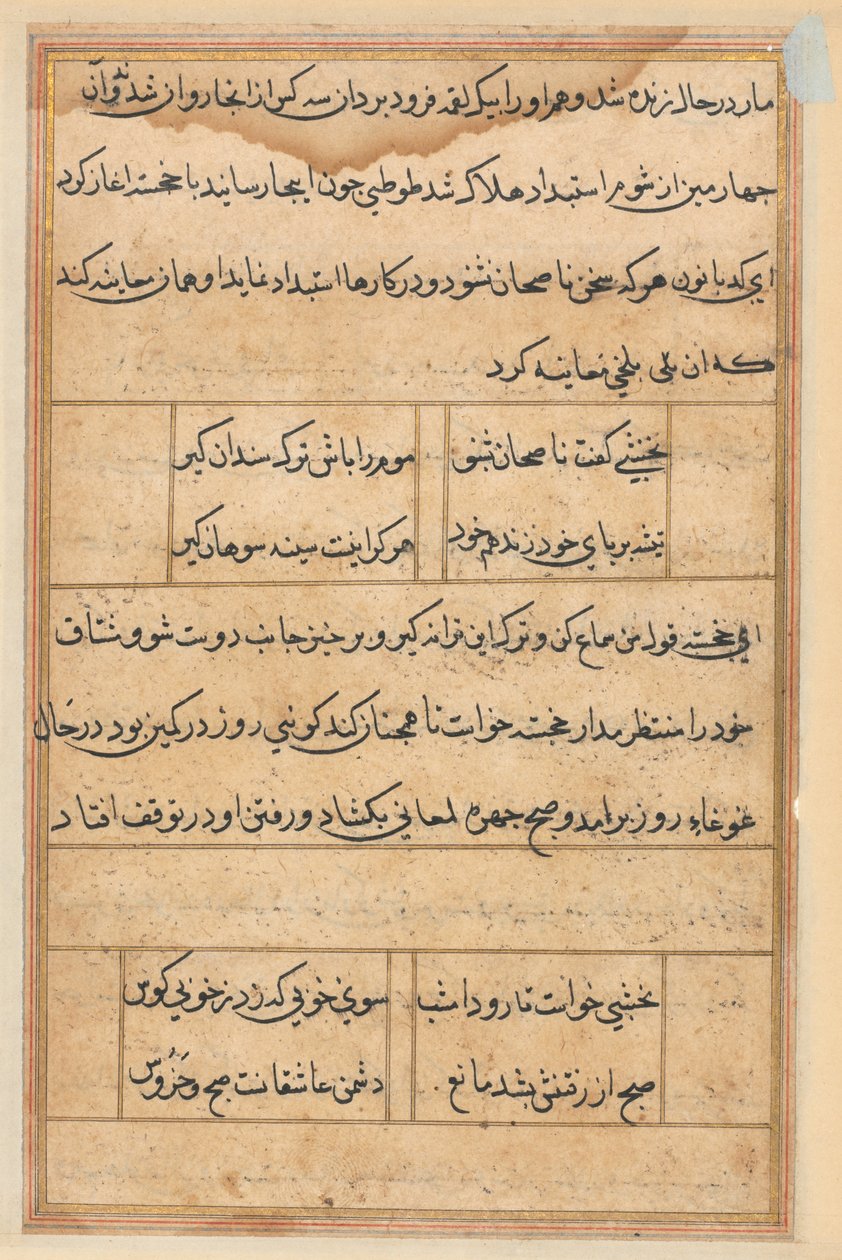 مار در حال زنده شد و هم او را بیک لقمه فرود برد ان سه کس از انجا روان شدند و آن
چهارمین از شوم استبداد هلاک شد طوطی چون اینجا رسانید با خجسته اغاز کرد
ای کدبانو هر که سخن ناصحان نشنود و در کارها استبداد نماید او همان معاینه کند
که ان بلخی معاینه کرد
نخشبی گفت ناصحان بشنو
موم را باش ترک سندان کیر
تیشه بر پای خود زند هم خود
هر کرا نیست سینه سوهان کیر
ای خجسته قول من سماع کن و ترک این ترانه کیر و برخیز جانب دوست شو و مشتاق
خود را منتظر مدار خجسته خواست تا همچنان کند کونی روز در کمین بود در حال
غوغاء روز برامد و صبح چهره لمعانی بکشاد و رفتن او در توقف افتاد
نخشبی خواست تا رود امشب
سوی خوبی که زد ز خوبی کوس
صبح از رفتنش بشد مانع
دشمن عاشقانست صبح و خروس